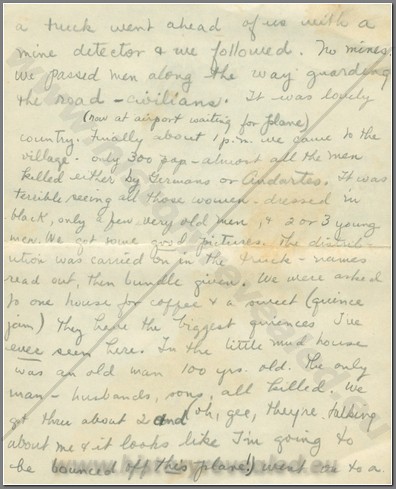 a truck went ahead of us with a
mine detector & we followed. No mines.
We passed men along the way guarding
the road - civilians. It was lovely
(now at airport waiting for plane)
country. Finally about 1 p.m. we came to the
village. only 300 pop - almost all the men
killed either by Germans or Andartes. It was
terrible seeing all those women - dressed in
black, only a few very old men, & 2 or 3 young
men. We got some good pictures. The distrib-
ution was carried on in the truck - names
read out, then bundle given. We were asked
to one house for coffee & a sweet (quence
jam) They have the biggest quences I've
ever seen here. In the little mud house
was an old man 100 yrs. old. The only
man - husbands, sons, all killed. We
got thru about 2 and (oh, gee, they're talking
about me & it looks like I'm going to
be bounced off this plane!) went on to a